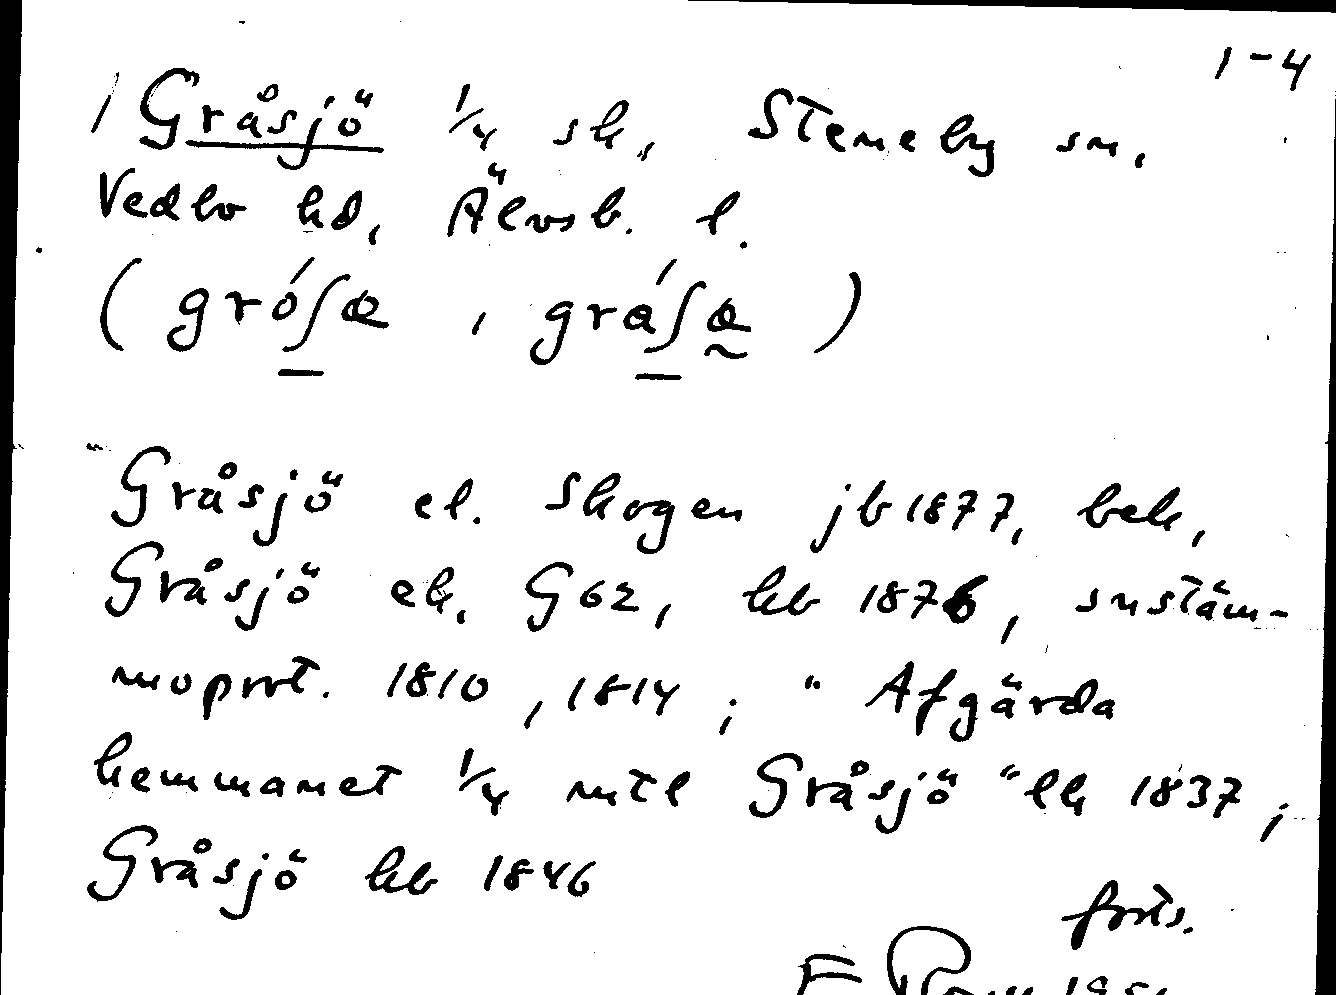 1-4
1) Gråsjö 1/4 sk, Steneby sn,
Vedbo hd, Älvsb. l.
(gróʃæ, gráʃæ)
Gråsjö el. Skogen jb 1877, bek,
Gråsjö ek. G62, kb 1876, snstäm-
moprot. 1810, 1814; "Afgärda
hemmanet 1/4 mtl Gråsjö" lk 1837;
Gråsjö kb 1846
forts.